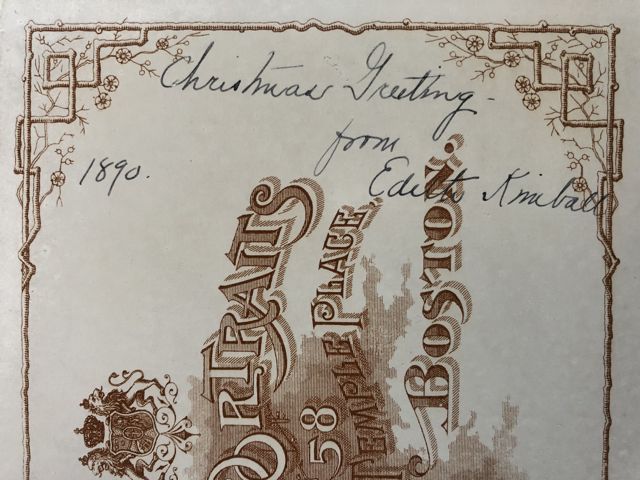 Christmas Greeting -
from
1890.
Edith Kimball
PORTRAITS
OF
58
TEMPLE PLACE,
BOSTON.